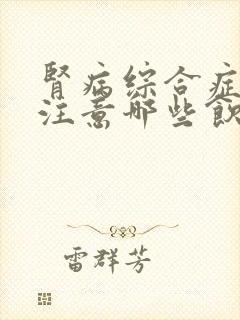 腎病綜合症
注意哪些飲
雷群芳